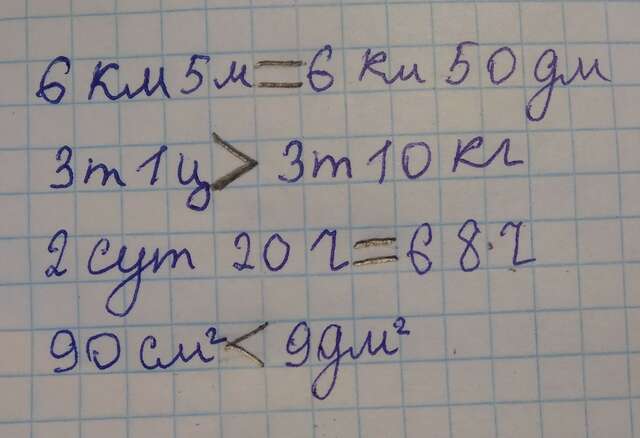 6 км 5 м = 6 км 50 дм
3 т 1 ц > 3 т 10 кг
2 сут 20 ч = 68 ч
90 см² < 9 дм²